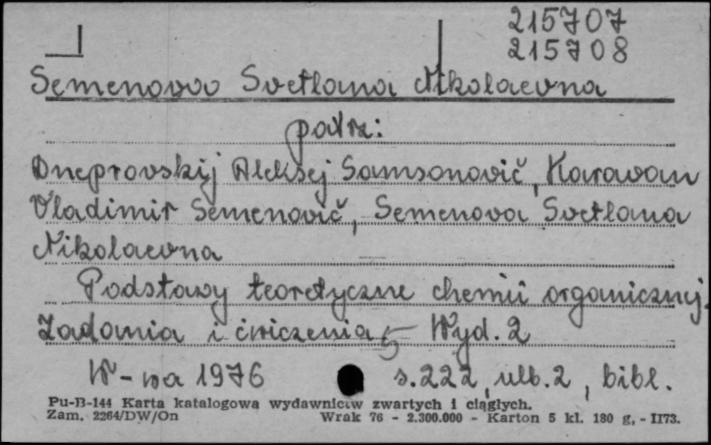 215707
215708
Semenova Svetlana Nikolaevna
patrz:
Dneprovskij Aleksej Samsonovič, Karavan
Vladimir Semenovič, Semenova Svetlana
Nikolaevna
Podstawy teoretyczne chemii organicznej.
Zadania i ćwiczenia Wyd. 2
W-wa 1976 s.222, ulb. 2, bibl.
Pu-B-144 Karta katalogowa wydawnictw zwartych i ciągłych.
Zam. 2264/DW/On Wrak 76 - 2.300.000 - Karton 5 kl. 180 g. - II73.